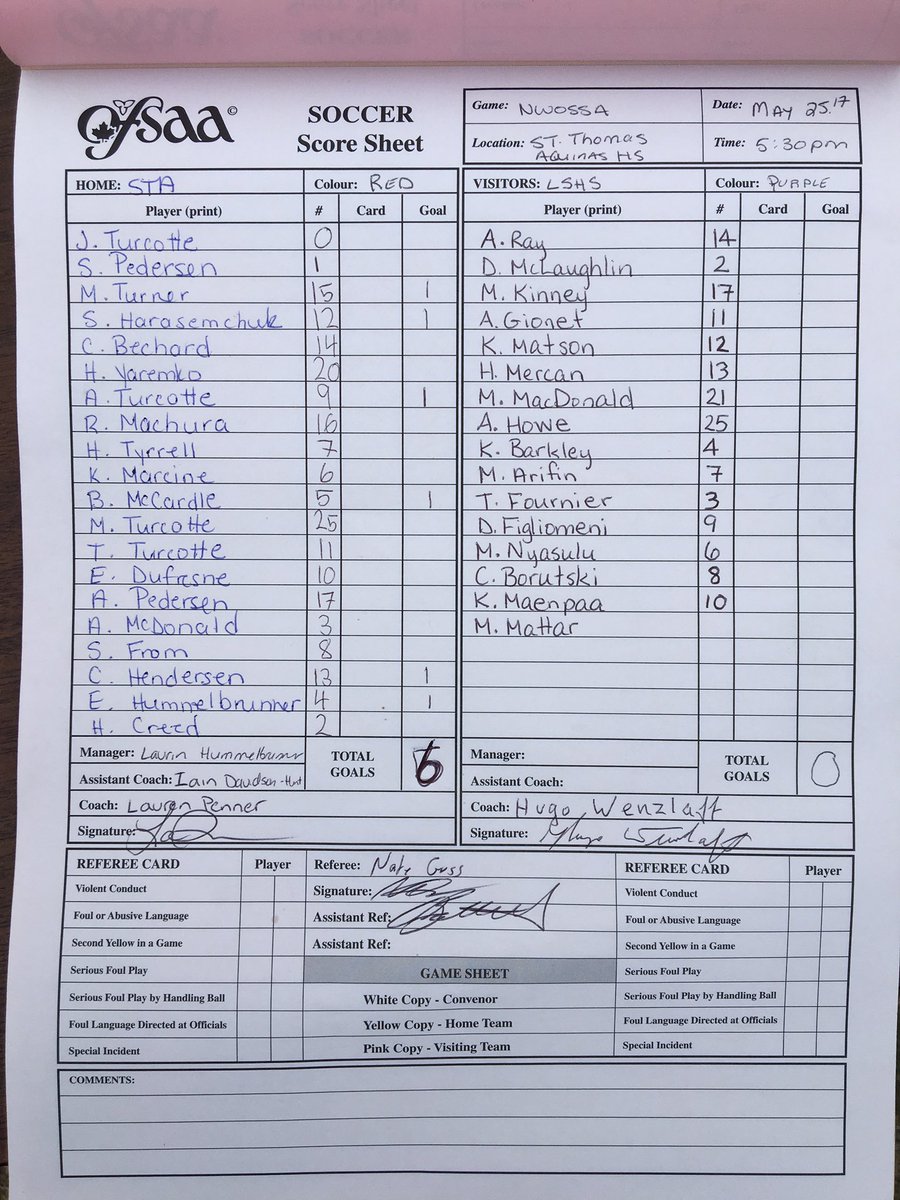 ofsaa©
SOCCER
Score Sheet
Game: NWOSSA
Date: MAY 25.17
Location: ST. THOMAS
AQUINAS HS
Time: 5:30pm
HOME: STA Colour: RED
Player (print) # Card Goal
J. Turcotte 0
S. Pedersen 1
M. Turner 15 1
S. Harasemchuk 12 1
C. Bechard 14
H. Yaremko 20
A. Turcotte 9 1
R. Machura 16
H. Tyrrell 7
K. Marcine 6
B. McCardle 5 1
M. Turcotte 25
T. Turcotte 11
E. Dufresne 10
A. Pedersen 17
A. McDonald 3
S. From 8
C. Hendersen 13 1
E. Hummelbrunner 4 1
H. Creed 2
Manager: Laurin Hummelbrunner
TOTAL GOALS 6
Assistant Coach: Iain Davidson-Hunt
Coach: Lauren Penner
Signature:
VISITORS: LSHS Colour: PURPLE
Player (print) # Card Goal
A. Ray 14
D. McLaughlin 2
M. Kinney 17
A. Gionet 11
K. Matson 12
H. Mercan 13
M. MacDonald 21
A. Howe 25
K. Barkley 4
M. Arifin 7
T. Fournier 3
D. Figliomeni 9
M. Nyasulu 6
C. Borutski 8
K. Maenpaa 10
M. Mattar
Manager:
TOTAL GOALS 0
Assistant Coach:
Coach: Hugo Wenzlaff
Signature: Hugo Wenzlaff
REFEREE CARD Player
Violent Conduct
Foul or Abusive Language
Second Yellow in a Game
Serious Foul Play
Serious Foul Play by Handling Ball
Foul Language Directed at Officials
Special Incident
Referee: Nate Guss
Signature:
Assistant Ref:
Assistant Ref:
GAME SHEET
White Copy - Convenor
Yellow Copy - Home Team
Pink Copy - Visiting Team
REFEREE CARD Player
Violent Conduct
Foul or Abusive Language
Second Yellow in a Game
Serious Foul Play
Serious Foul Play by Handling Ball
Foul Language Directed at Officials
Special Incident
COMMENTS: